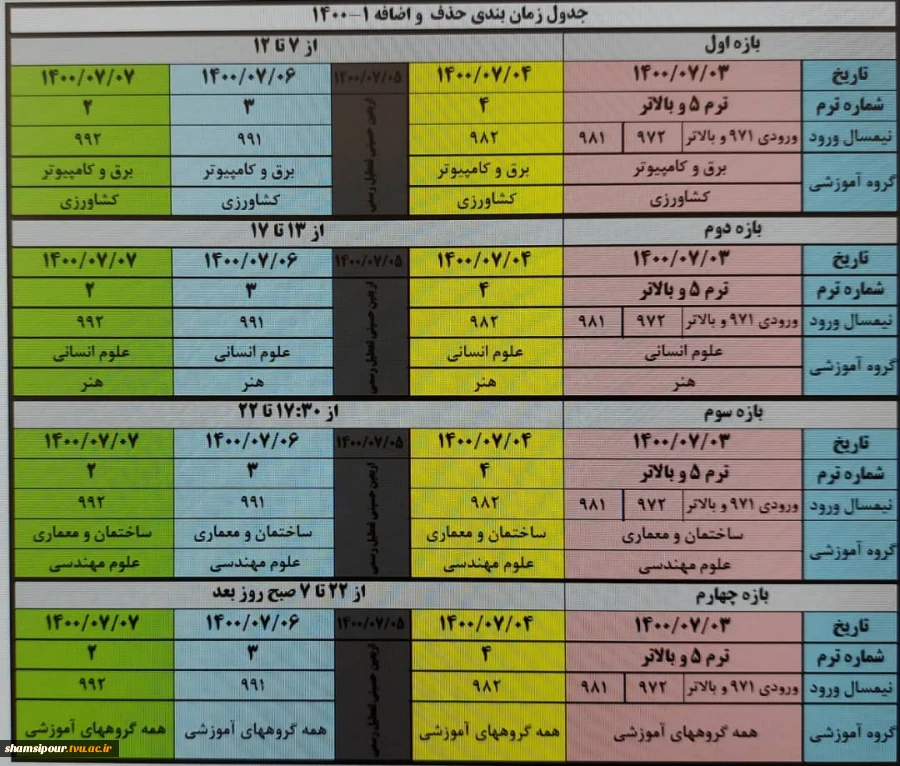 جدول زمان بندی حذف و اضافه ۱-۱۴۰۰
بازه اول از ۷ تا ۱۲
تاریخ ۱۴۰۰/۰۷/۰۳ ۱۴۰۰/۰۷/۰۴ ۱۴۰۰/۰۷/۰۵ ۱۴۰۰/۰۷/۰۶ ۱۴۰۰/۰۷/۰۷
شماره ترم ترم ۵ و بالاتر ۴ اربعین حسینی تعطیل رسمی ۳ ۲
نیمسال ورود ورودی ۹۷۱ و بالاتر ۹۷۲ ۹۸۱ ۹۸۲ ۹۹۱ ۹۹۲
گروه آموزشی برق و کامپیوتر برق و کامپیوتر برق و کامپیوتر برق و کامپیوتر
کشاورزی کشاورزی کشاورزی کشاورزی
بازه دوم از ۱۳ تا ۱۷
تاریخ ۱۴۰۰/۰۷/۰۳ ۱۴۰۰/۰۷/۰۴ ۱۴۰۰/۰۷/۰۵ ۱۴۰۰/۰۷/۰۶ ۱۴۰۰/۰۷/۰۷
شماره ترم ترم ۵ و بالاتر ۴ اربعین حسینی تعطیل رسمی ۳ ۲
نیمسال ورود ورودی ۹۷۱ و بالاتر ۹۷۲ ۹۸۱ ۹۸۲ ۹۹۱ ۹۹۲
گروه آموزشی علوم انسانی علوم انسانی علوم انسانی علوم انسانی
هنر هنر هنر هنر
بازه سوم از ۱۷:۳۰ تا ۲۲
تاریخ ۱۴۰۰/۰۷/۰۳ ۱۴۰۰/۰۷/۰۴ ۱۴۰۰/۰۷/۰۵ ۱۴۰۰/۰۷/۰۶ ۱۴۰۰/۰۷/۰۷
شماره ترم ترم ۵ و بالاتر ۴ اربعین حسینی تعطیل رسمی ۳ ۲
نیمسال ورود ورودی ۹۷۱ و بالاتر ۹۷۲ ۹۸۱ ۹۸۲ ۹۹۱ ۹۹۲
گروه آموزشی ساختمان و معماری ساختمان و معماری ساختمان و معماری ساختمان و معماری
علوم مهندسی علوم مهندسی علوم مهندسی علوم مهندسی
بازه چهارم از ۲۲ تا ۷ صبح روز بعد
تاریخ ۱۴۰۰/۰۷/۰۳ ۱۴۰۰/۰۷/۰۴ ۱۴۰۰/۰۷/۰۵ ۱۴۰۰/۰۷/۰۶ ۱۴۰۰/۰۷/۰۷
شماره ترم ترم ۵ و بالاتر ۴ اربعین حسینی تعطیل رسمی ۳ ۲
نیمسال ورود ورودی ۹۷۱ و بالاتر ۹۷۲ ۹۸۱ ۹۸۲ ۹۹۱ ۹۹۲
گروه آموزشی همه گروههای آموزشی همه گروههای آموزشی همه گروههای آموزشی همه گروههای آموزشی
shamsipour.tvu.ac.ir